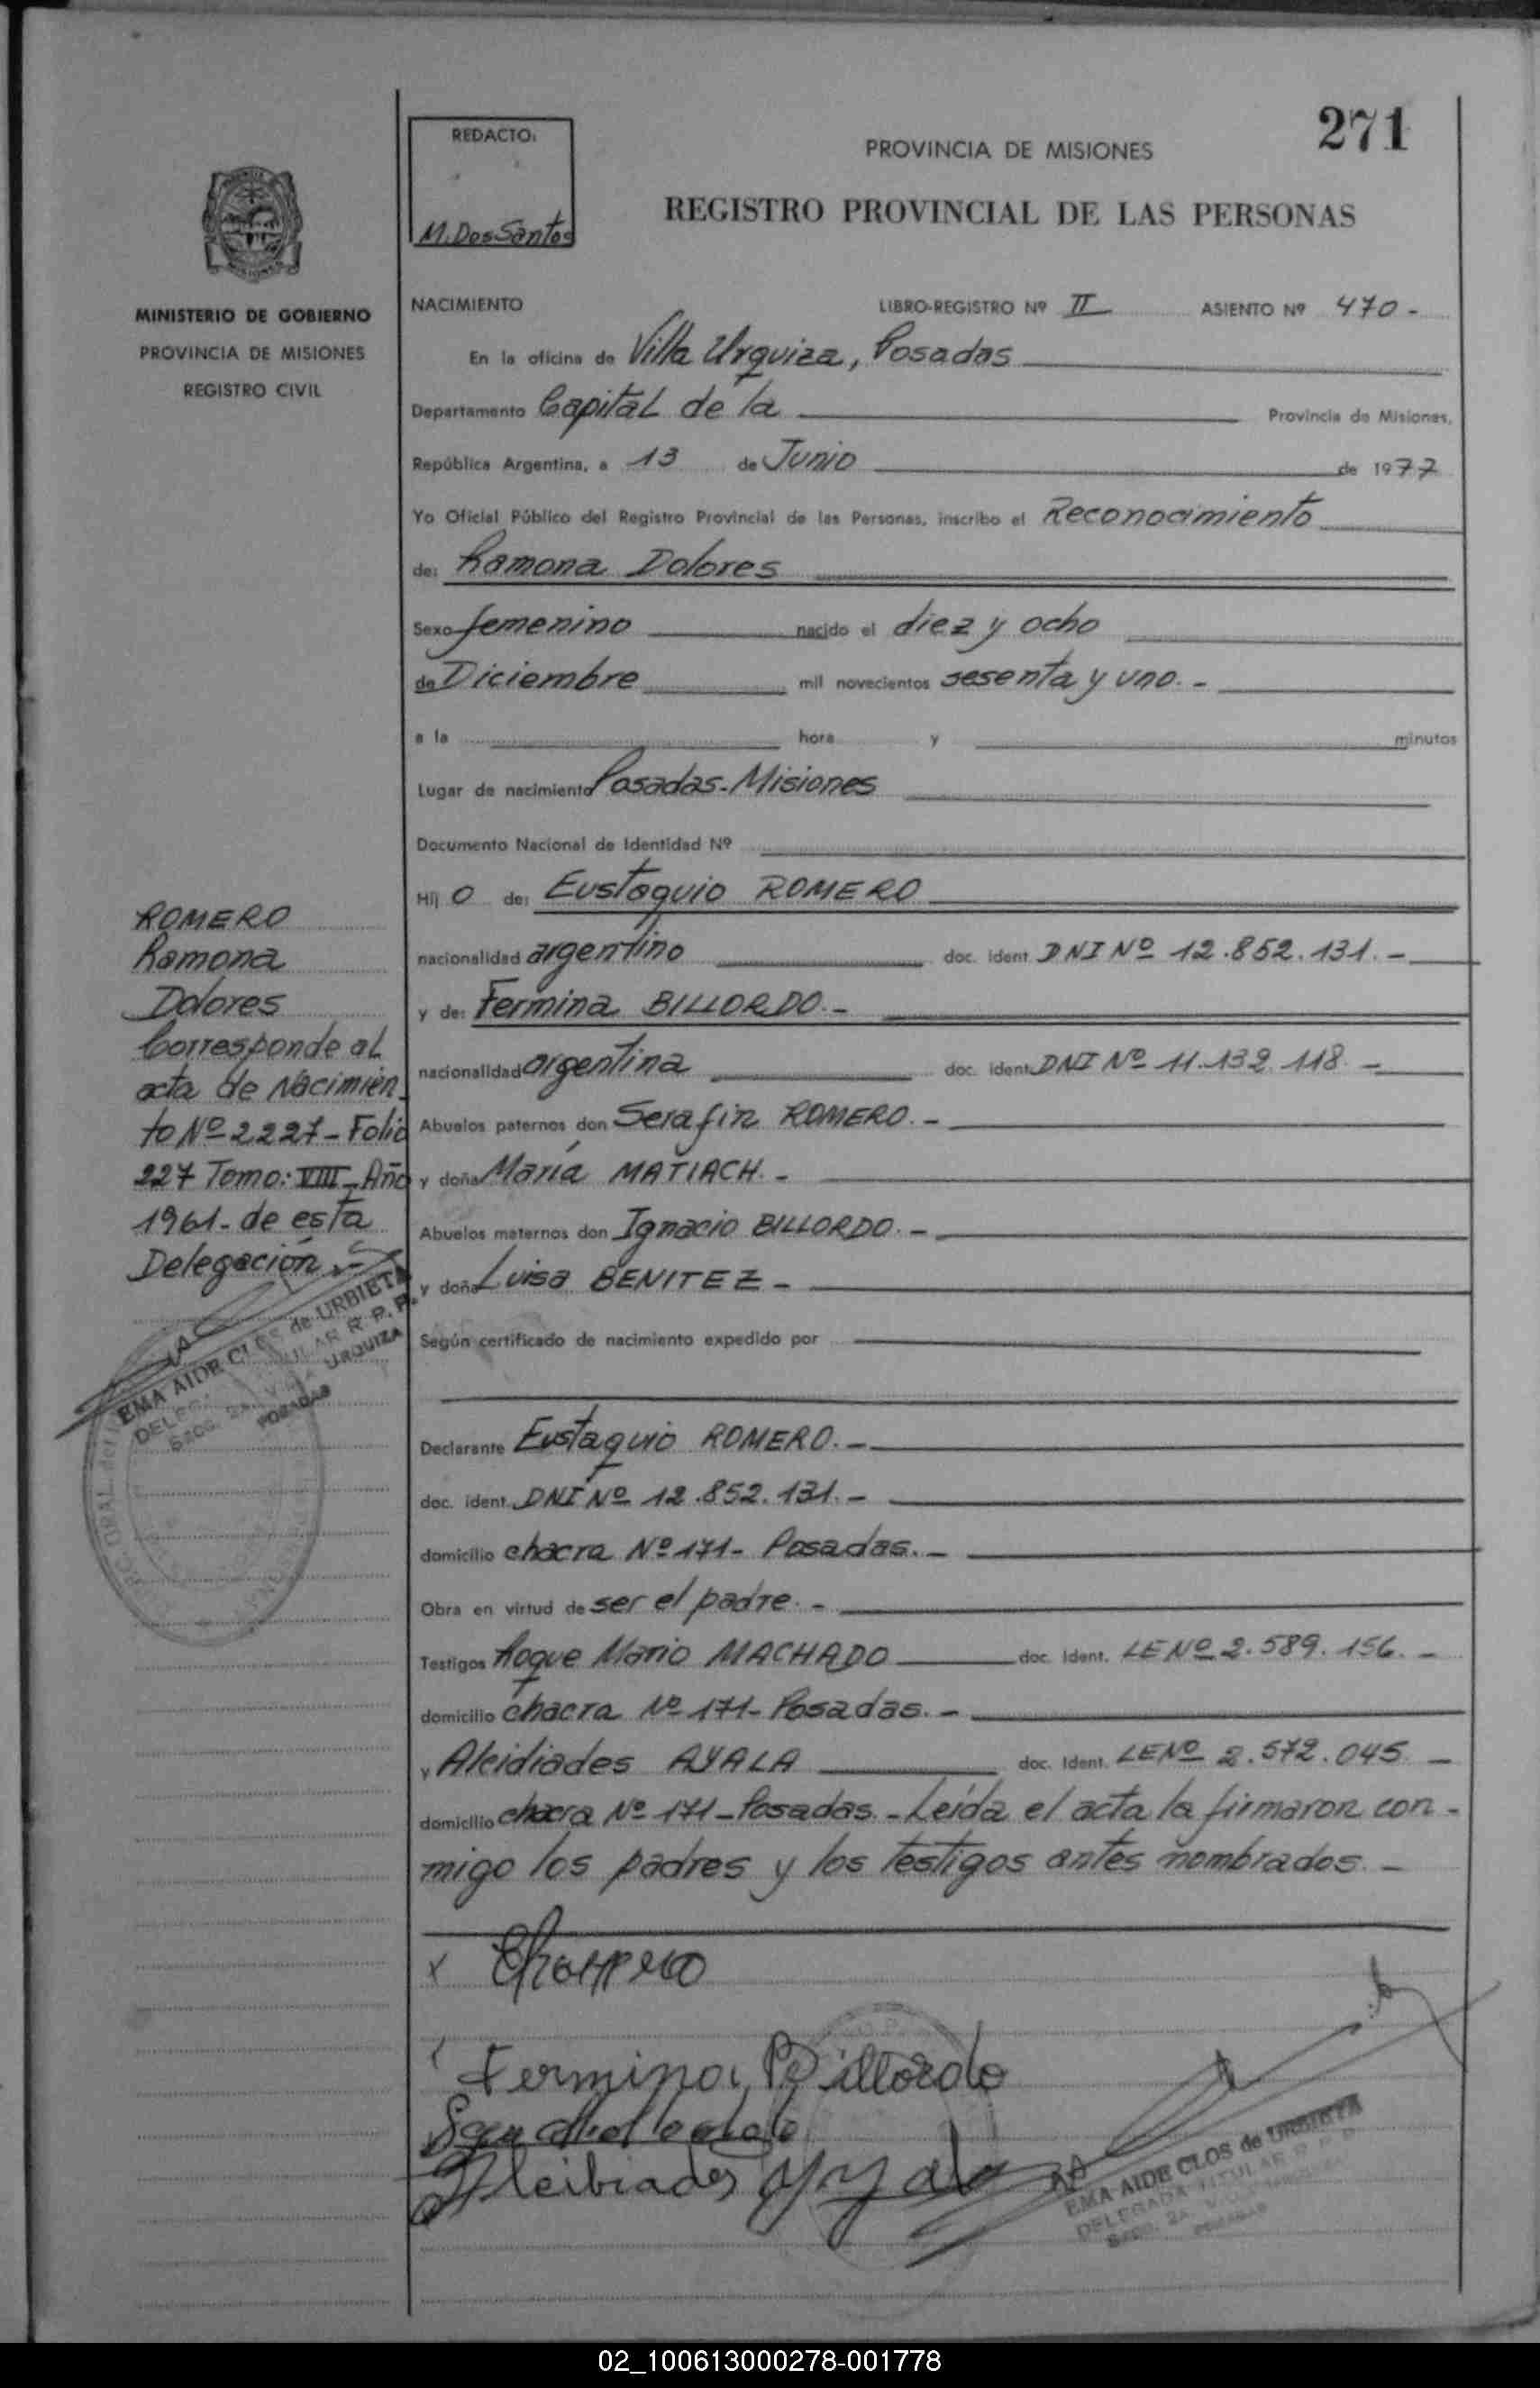 271
REDACTO:
M. Dos Santos
PROVINCIA DE MISIONES
REGISTRO PROVINCIAL DE LAS PERSONAS
MINISTERIO DE GOBIERNO
PROVINCIA DE MISIONES
REGISTRO CIVIL
NACIMIENTO LIBRO-REGISTRO Nº II ASIENTO Nº 470 -
En la oficina de Villa Urquiza, Posadas
Departamento Capital de la Provincia de Misiones,
República Argentina, a 13 de Junio de 1977
Yo Oficial Público del Registro Provincial de las Personas, inscribo el Reconocimiento
de: Ramona Dolores
Sexo femenino nacido el diez y ocho
de Diciembre mil novecientos sesenta y uno. -
a la hora y minutos
Lugar de nacimiento Posadas-Misiones
Documento Nacional de Identidad Nº
Hij o de: Eustaquio ROMERO
nacionalidad argentino doc. ident. DNI Nº 12.852.131. -
y de: Fermina BILLORDO. -
nacionalidad argentina doc. ident. DNI Nº 11.132.118. -
Abuelos paternos don Serafin ROMERO. -
y doña María MATIACH. -
Abuelos maternos don Ignacio BILLORDO. -
y doña Luisa BENITEZ -
Según certificado de nacimiento expedido por
Declarante Eustaquio ROMERO. -
doc. ident. DNI Nº 12.852.131. -
domicilio chacra Nº 171- Posadas. -
Obra en virtud de ser el padre. -
Testigos Roque Mario MACHADO doc. Ident. LE Nº 2.589.156. -
domicilio chacra Nº 171- Posadas. -
y Alcidiades AYALA doc. Ident. LE Nº 2.572.045 -
domicilio chacra Nº 171-Posadas.-Leída el acta la firmaron con-
migo los padres y los testigos antes nombrados. -
ROMERO
Ramona
Dolores
Corresponde al
acta de Nacimien-
to Nº 2227-Folio
227 Tomo: VIII-Año
1961- de esta
Delegación. -
EMA AIDE CLOS de URBIETA
URQUIZA
POSADAS
x
Fermina Billordo
Alcibiades Ayala
EMA AIDE CLOS de URBIETA
DELEGADA TITULAR R. P. P.
02_100613000278-001778